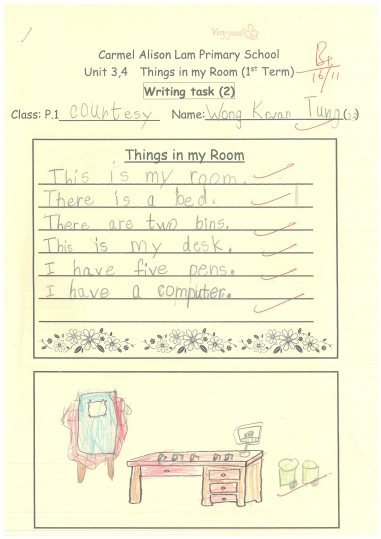 Very good!
Carmel Alison Lam Primary School
Unit 3,4 Things in my Room (1st Term)
B+
16/11
Writing task (2)
Class: P.1 courtesy Name: Wong Kwan Tung
Things in my Room
This is my room.
There is a bed.
There are two bins.
This is my desk.
I have five pens.
I have a computer.